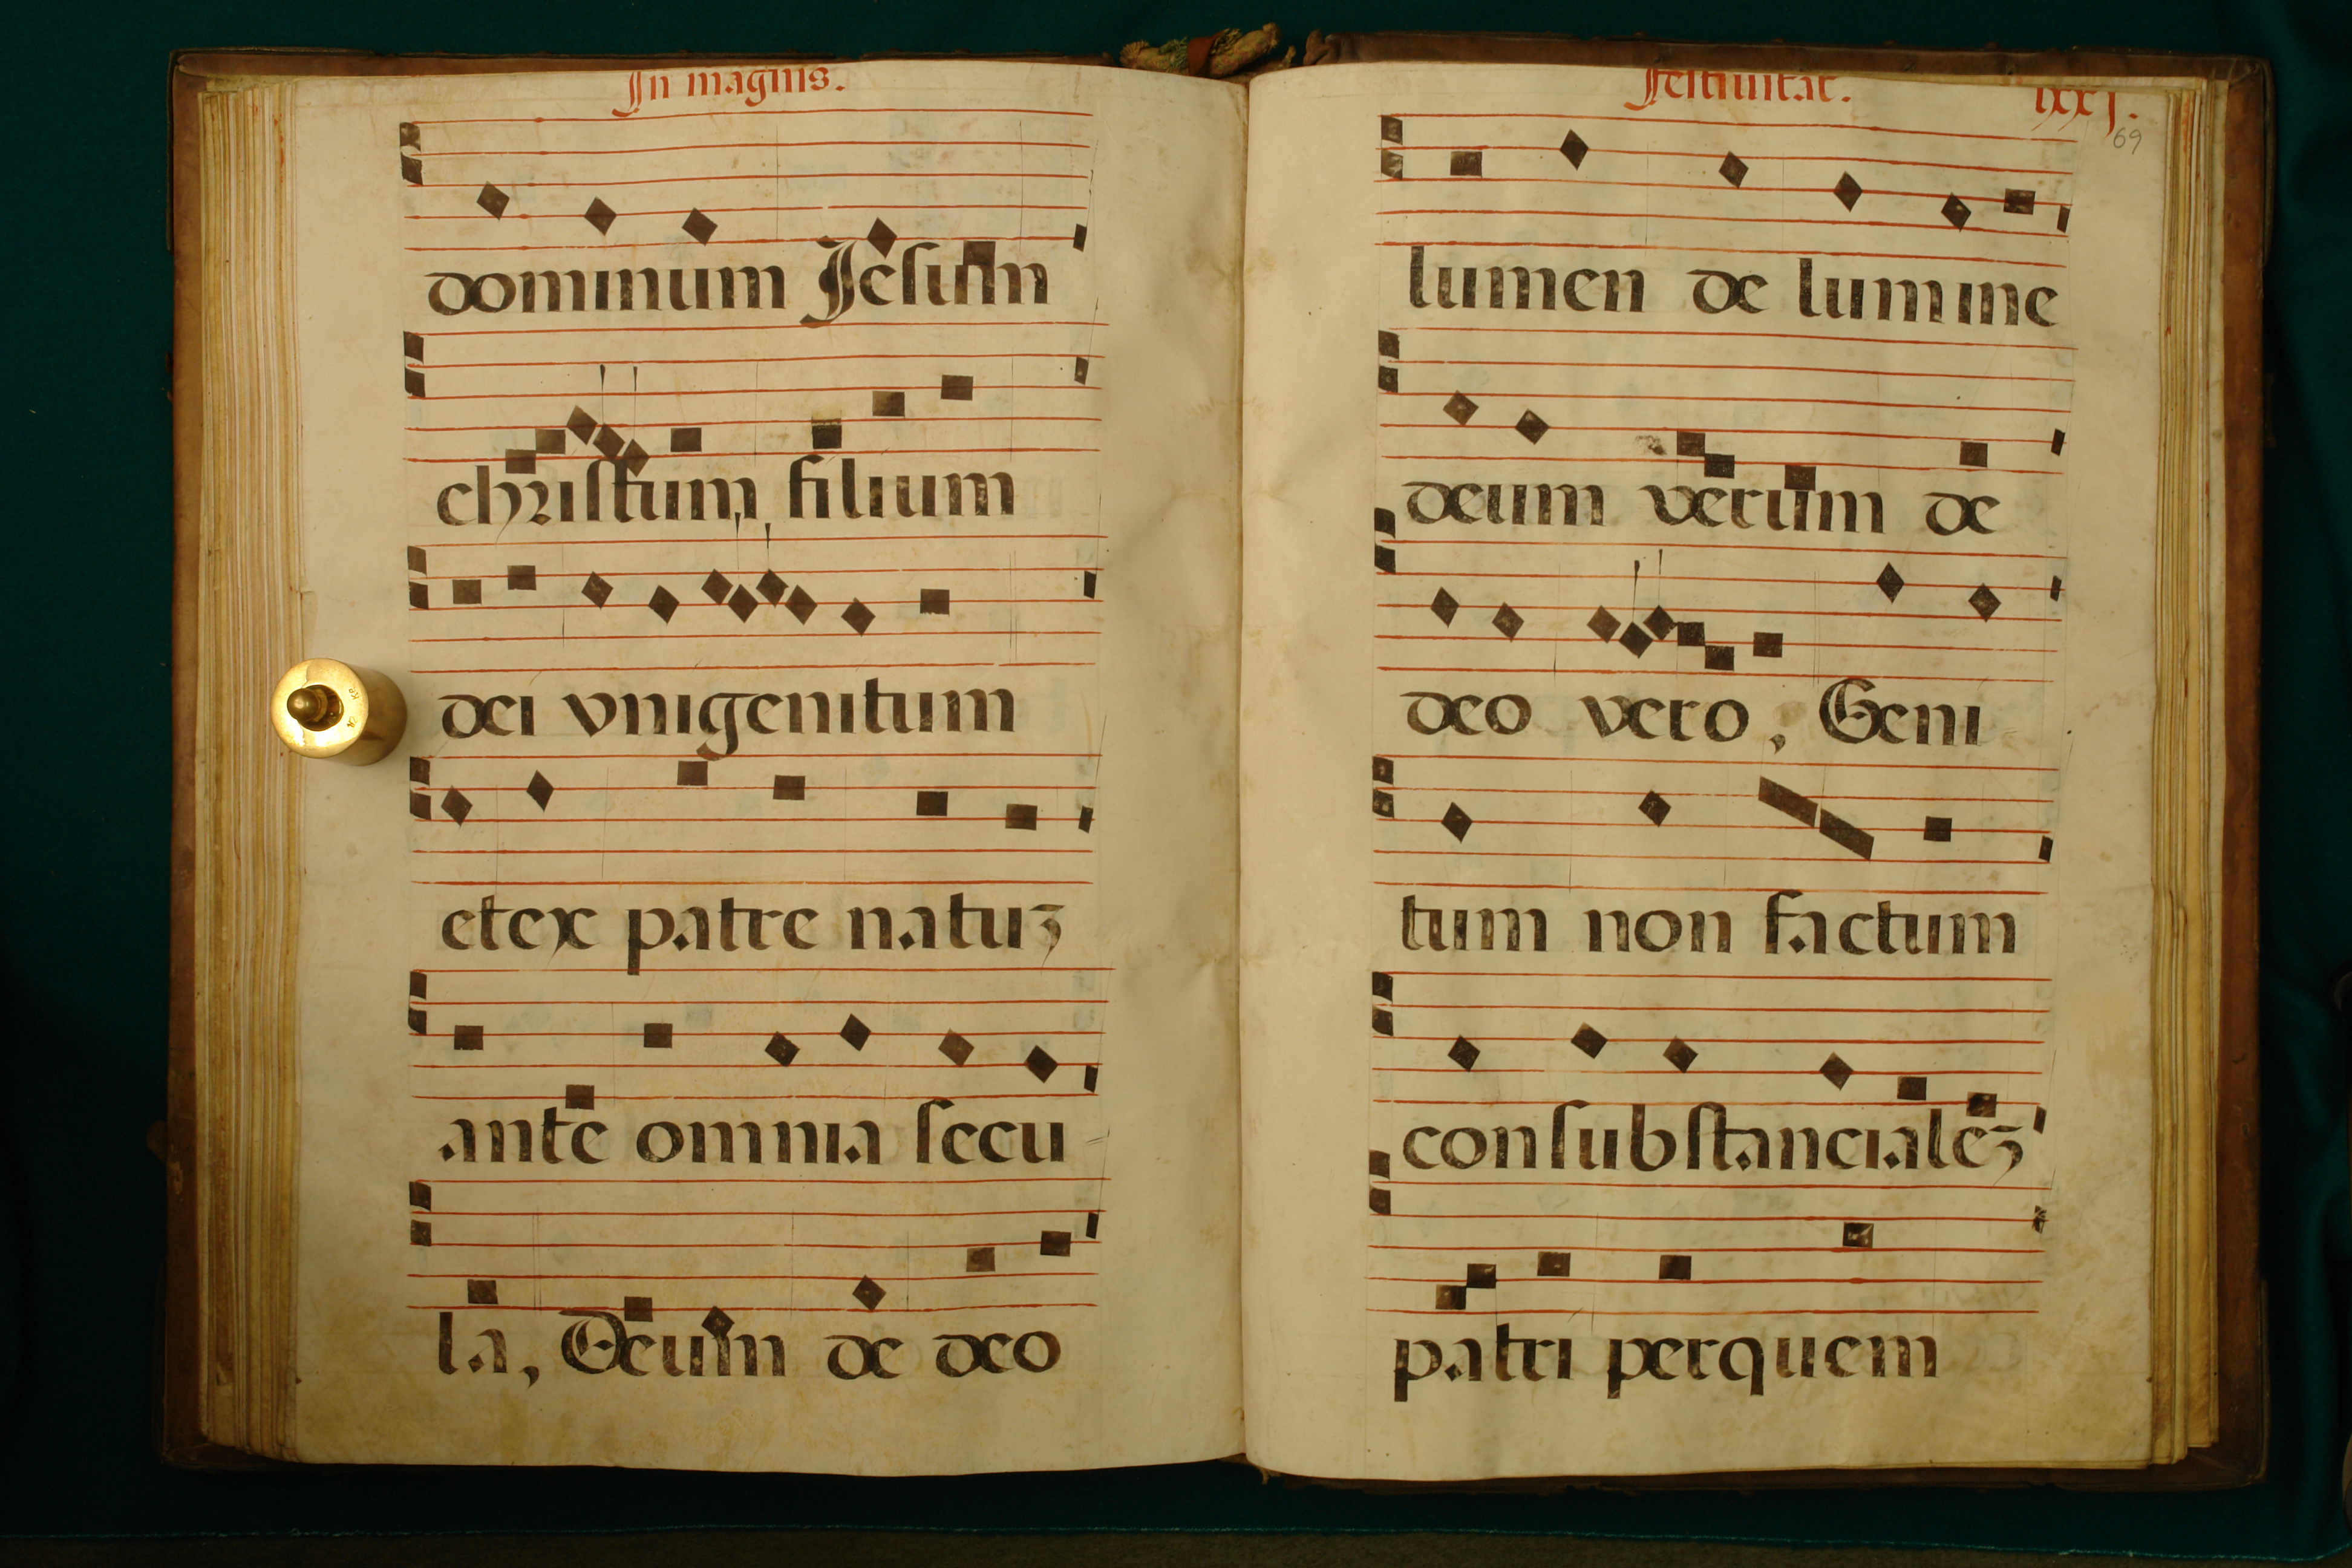 In magnis.
dominum Jesum
christum filium
dei vnigenitum
etex patre natuȝ
ante omnia secu
la, Deum de deo
Festiuitat. lxxj.
69
lumen de lumine
deum verum de
deo vero, Geni
tum non factum
consubstancialeȝ
patri perquem